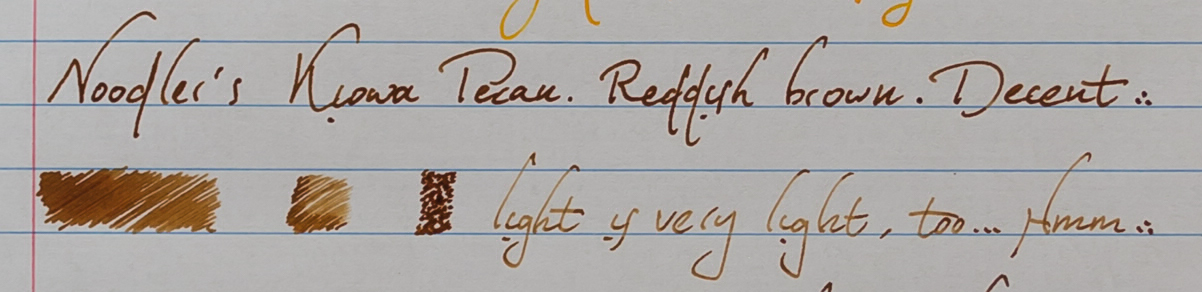 Noodler's Kiowa Pecan. Reddish brown. Decent...
light is very light, too... Hmm...